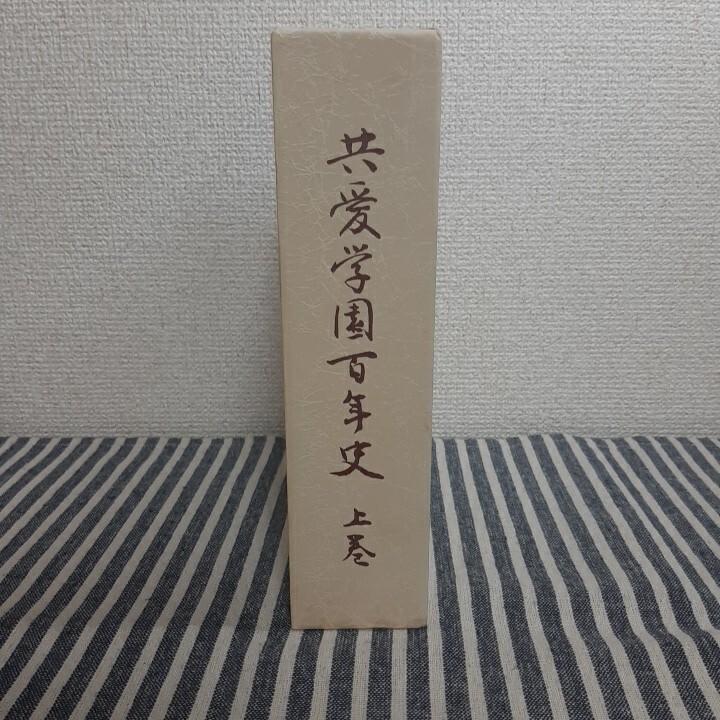 共愛学園百年史 上巻